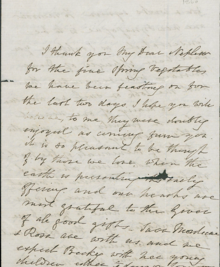 I thank you My dear Nephew
for the fine Spring Vegetables
we have been feasting on for
the last two days, I hope you will
to me they were doubly
enjoyed as coming from you
it is so pleasant to be thought
of by those we love when the
earth is
offering and our hearts are
most grateful to the Giver
of all good gifts.
& Rosa are with us, and we
expect Becky with her young
children